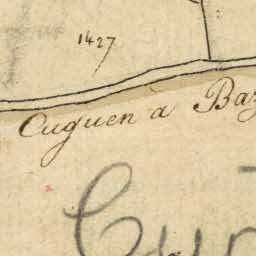 1427
Cuguen à Baz